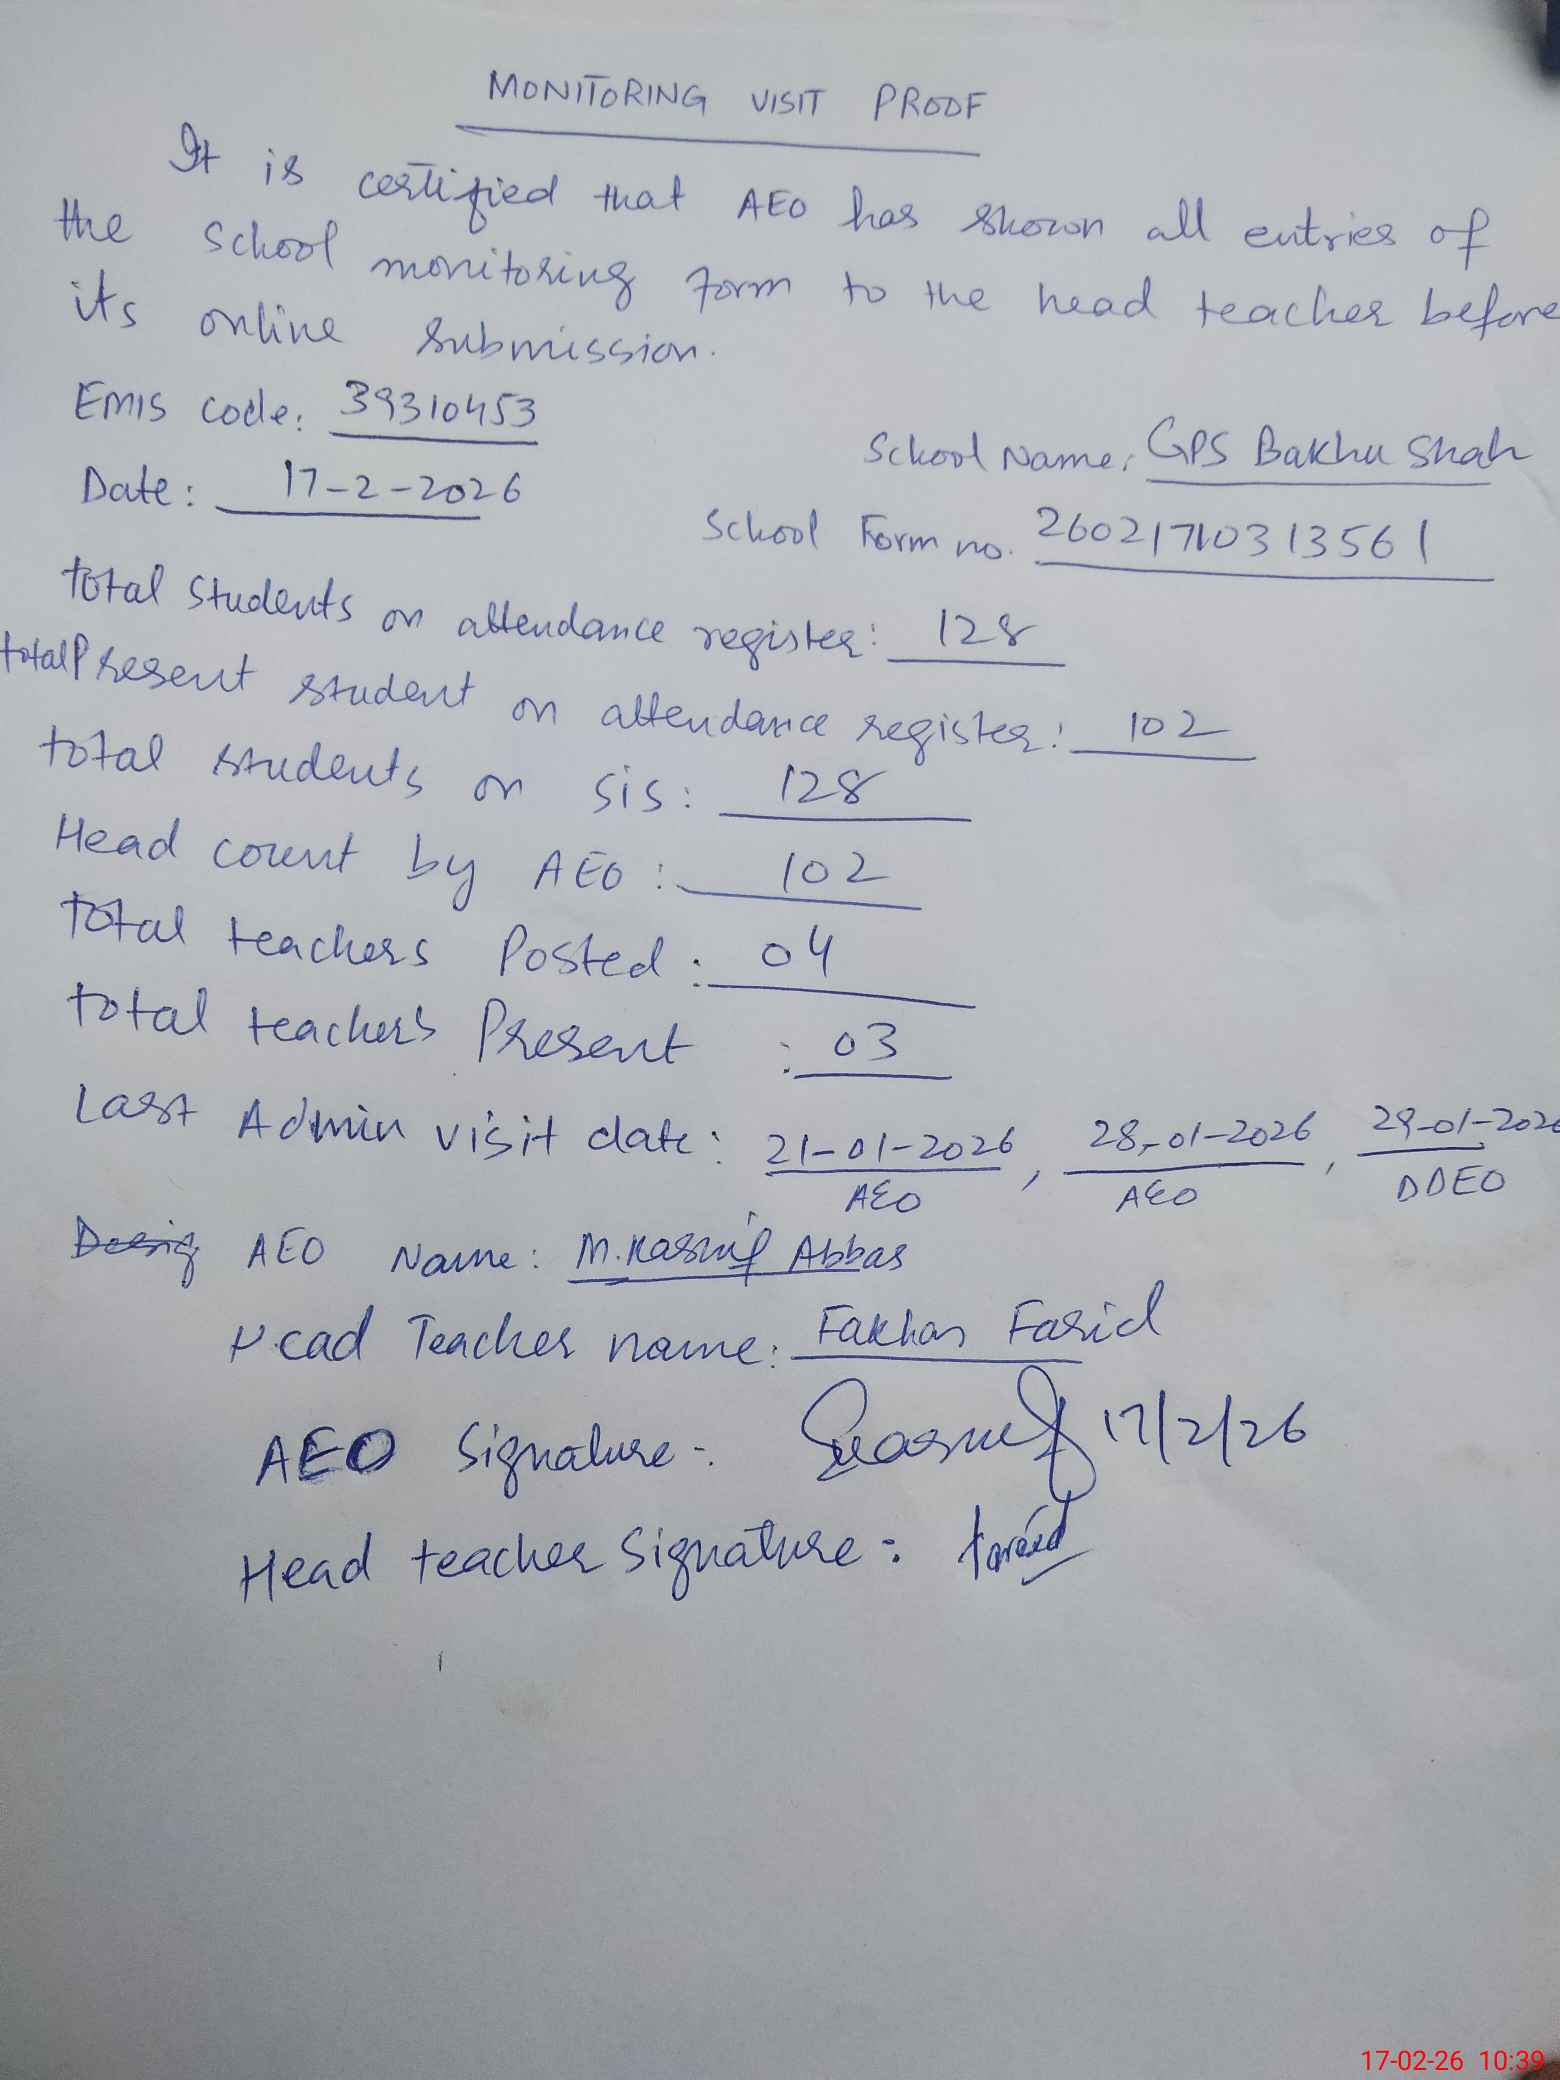 MONITORING VISIT PROOF
It is certified that AEO has shown all entries of
the School monitoring form to the head teacher before
its online submission.
EMIS code: 39310453
School Name: GPS Bakhu Shah
Date: 17-2-2026
School Form no. 26021710313561
total Students on attendance register: 128
total Present student on attendance register: 102
total students on sis: 128
Head count by AEO: 102
total teachers Posted: 04
total teachers Present : 03
Last Admin visit date: 21-01-2026, 28-01-2026, 29-01-2026
AEO AEO DDEO
AEO Name: M.Kashif Abbas
Head Teacher name: Fakhar Farid
AEO Signature:- 17/2/26
Head teacher Signature:
17-02-26 10:39